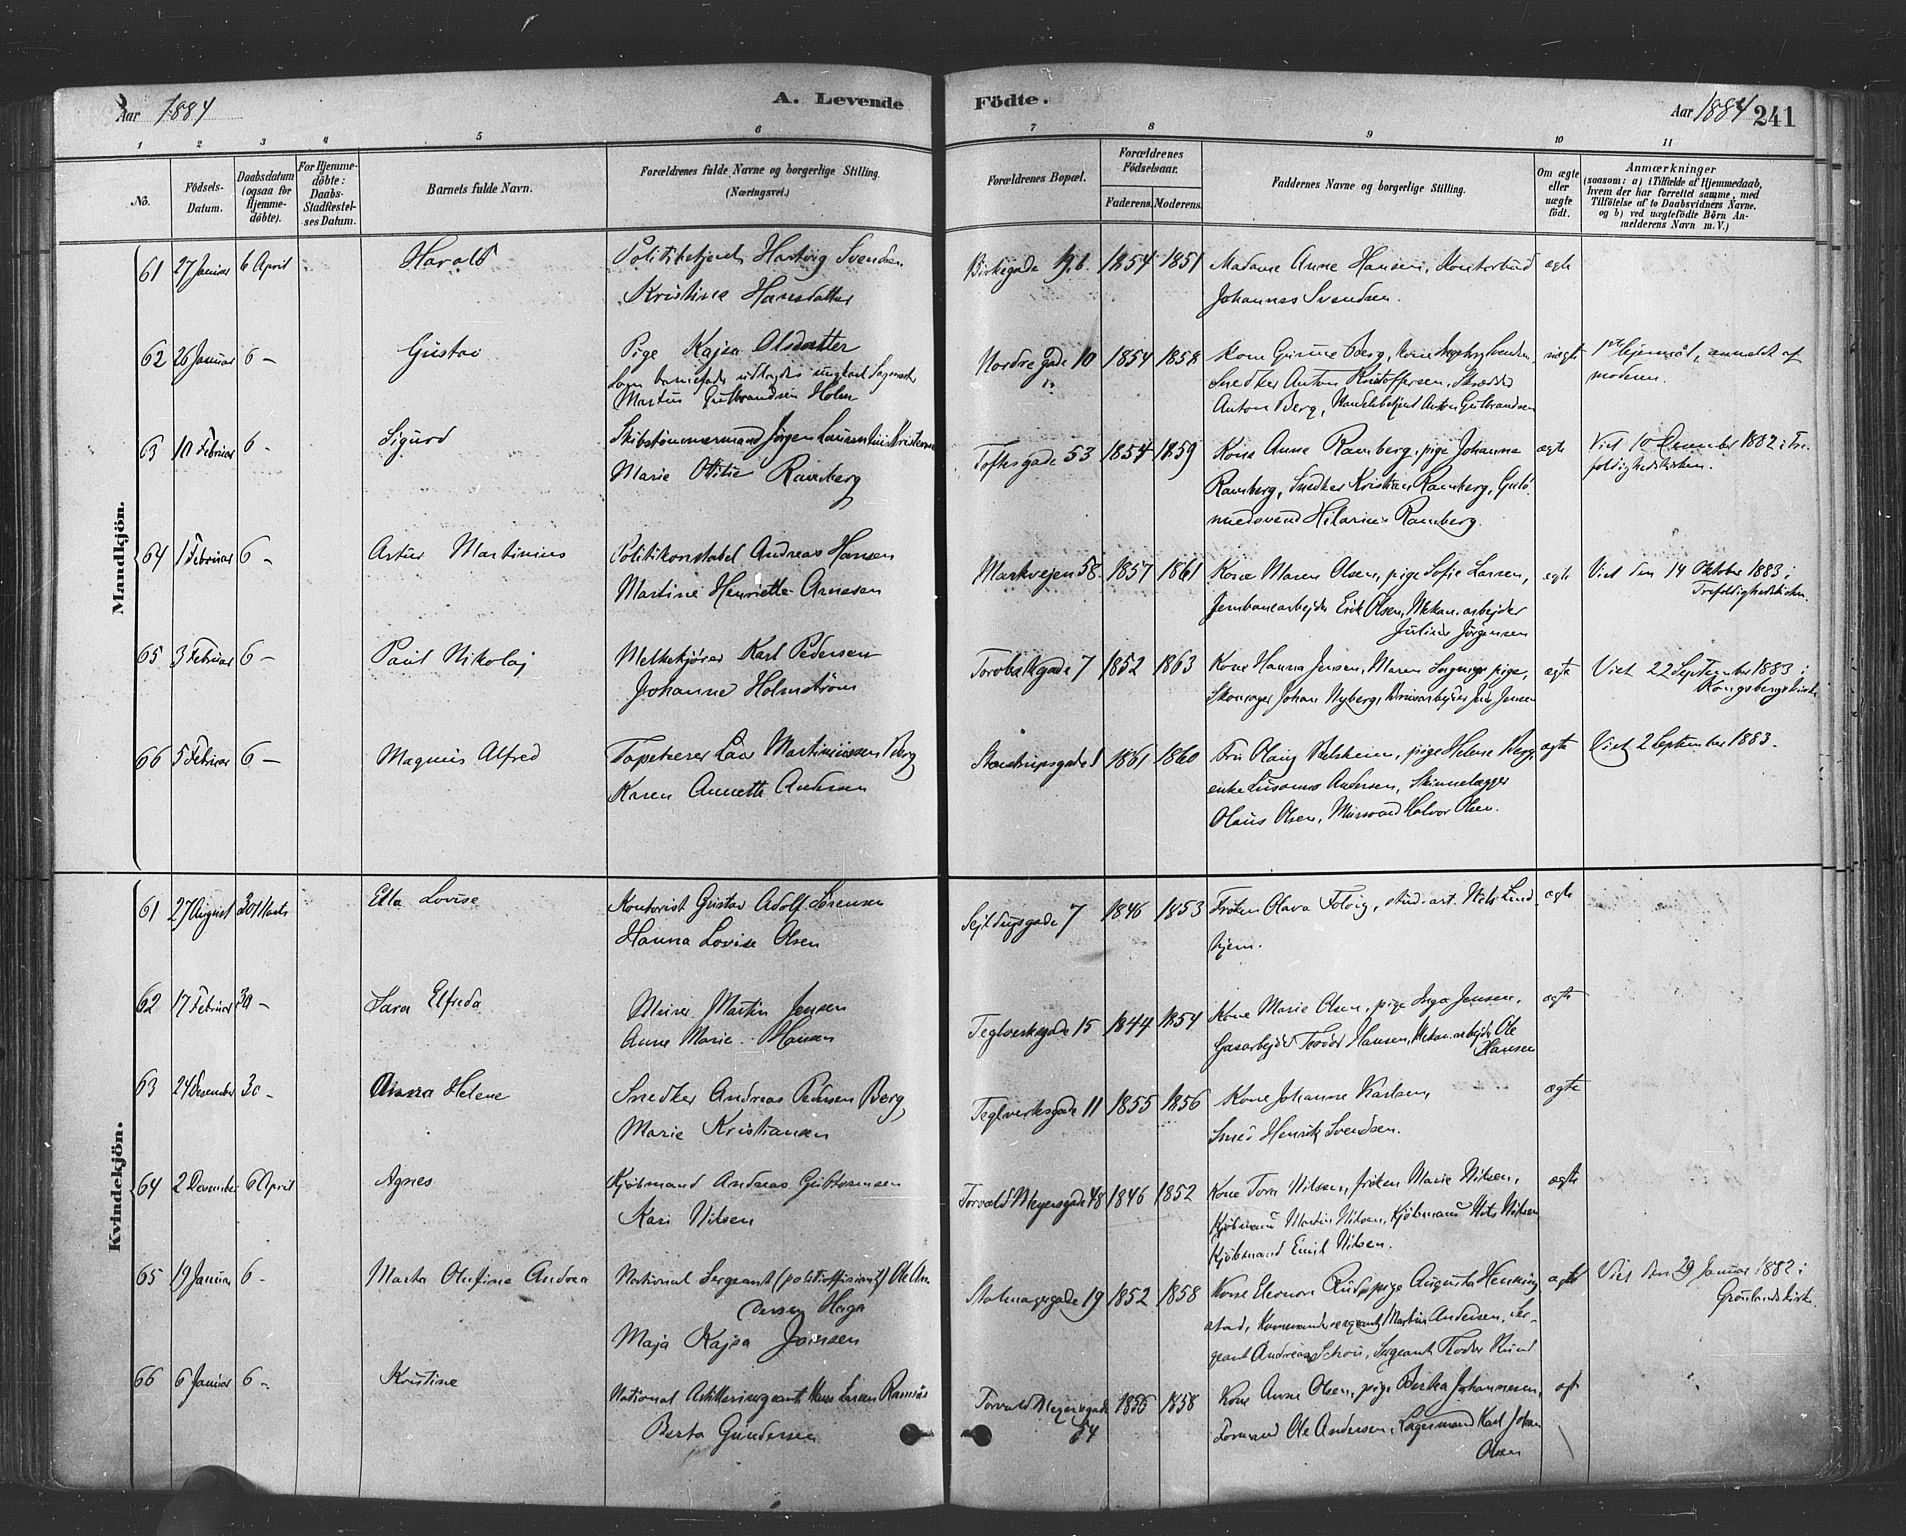 Aar 1884
A. Levende Födte.
Aar 1884 241
1 2 3 4 5 6 7 8 9 10 11
No.
Födsels-Datum.
Daabsdatum (ogsaa for Hjemme-döbte).
For Hjemme-döbte: Daabs-Stadfæstel-ses Datum.
Barnets fulde Navn.
Forældrenes fulde Navne og borgerlige Stilling.
(Næringsvei.)
Forældrenes Bopæl.
Forældrenes Födselsaar.
Faderens. Moderens.
Faddernes Navne og borgerlige Stilling.
Om ægte eller uægte födt.
Anmærkninger
(saasom: a) i Tilfælde af Hjemmedaab,
hvem der har forrettet samme, med
Tilföielse af to Daabsvidners Navne.
og b) ved uægtefödte Börn An-
melderens Navn m. V.)
Mandkjön.
61 27 Januar 6 April Harald Politibetjent Hartvig Svendsen Birkegade 1854 1851 Madame Anne Hansen, Kontorbud ægte
Kristine Hansdatter Johannes Svendsen.
62 26 Januar 6 – Gustav Pige Kajsa Olsdatter Nordre Gade 10 1854 1858 Kone Gunne Berg, uægte anmeldt af
Som barnefader udlagdes ungkarl Snedker Anton Kristoffersen, moderen.
Martin Gulbrandsen Holm Anton Berg, Handelsbetjent Anton Gulbrandsen
63 10 Februar 6 – Sigurd Skibstömmermand Jörgen Toftesgade 53 1854 1859 Kone Anne Ramberg, pige Johanna ægte Viet 10 December 1882 i Tre-
Marie Otitie Ramberg Ramberg, Snedker Kristian Ramberg, Guld- foldighedskirken.
smedsvend Hilarius Ramberg.
64 1 Februar 6 – Artur Martinius Politikonstabel Andreas Hansen Markvejen 58. 1857 1861 Kone Maren Olsen, pige Sofie Larsen, ægte Viet den 14 Oktober 1883 i
Martine Henriette Arnesen Jernbanearbejder Erik Olsen, Mekan. arbejder Trefoldighedskirken.
Julius Jörgensen
65 3 Februar 6 – Paul Nikolaj Melkekjörer Karl Pedersen Torvbakkgade 7 1852 1863 Kone Hanna Jensen, Maren pige, ægte Viet 22 September 1883 i
Johanne Holmström Skomager Johan Nyberg, Jensen Kongsbergs Kirke
66 5 Februar 6 – Magnus Alfred Tapetserer Martiniussen Berg 1861 1860 Fru Olaug pige Helene Berg, ægte Viet 2 September 1883.
Karen Annette Andersen enke Andersen, Skinnelægger
Olaus Olsen, Murssvend Halvor Olsen.
Kvindekjön.
61 27 August 30 Marts Etta Lovise Kontorist Gustav Adolf Sörensen Sejldugsgade 7 1846 1853 Fröken Olava stud. art. Nils Lind- ægte
Hanna Lovise Olsen hjem.
62 17 Februar 30 – Sara Elfreda Murer Martin Jensen Teglverksgade 15 1844 1854 Kone Marie Olsen, pige Inga Jensen, ægte
Anne Marie Hansen Gasarbejder Hansen, Mekan. arbejder Ole
Hansen
63 24 Desember 30 – Anna Helene Snedker Andreas Pedersen Berg Teglverksgade 11 1855 1856 Kone Johanne Karlsen, ægte
Marie Kristiansen Smed Henrik Svendsen.
64 2 Desember 6 April Agnes Kjöbmand Andreas Gulbransen Torvald Meyersgade 48 1846 1852 Kone Tora Nilsen, fröken Marie Nilsen, ægte
Kari Nilsen Kjöbmand Martin Nilsen, Kjöbmand Nils Nilsen
Kjöbmand Emil Nilsen.
65 19 Januar 6 – Marta Olufine Andrea National Sergeant (politioffisiant) Ole An- Stolmagergade 19 1852 1858 Kone Eleonora Rud, pige Augusta ægte Viet den 29 Januar 1882 i
dersen Haga stad, Kommandersergeant Martin Andersen, Ser- Grönlands Kirke.
Maja Kajsa Jonsen geant Andreas Schou, Sergeant
66 6 Januar 6 – Kristine National Artillerisergeant Hans Larsen Torvald Meyersgade 1855 1858 Kone Anne Olsen, pige Berta Johannesen,
Berta Gundersen 54 Formand Ole Andersen, Lagermand Karl Johan
Olsen